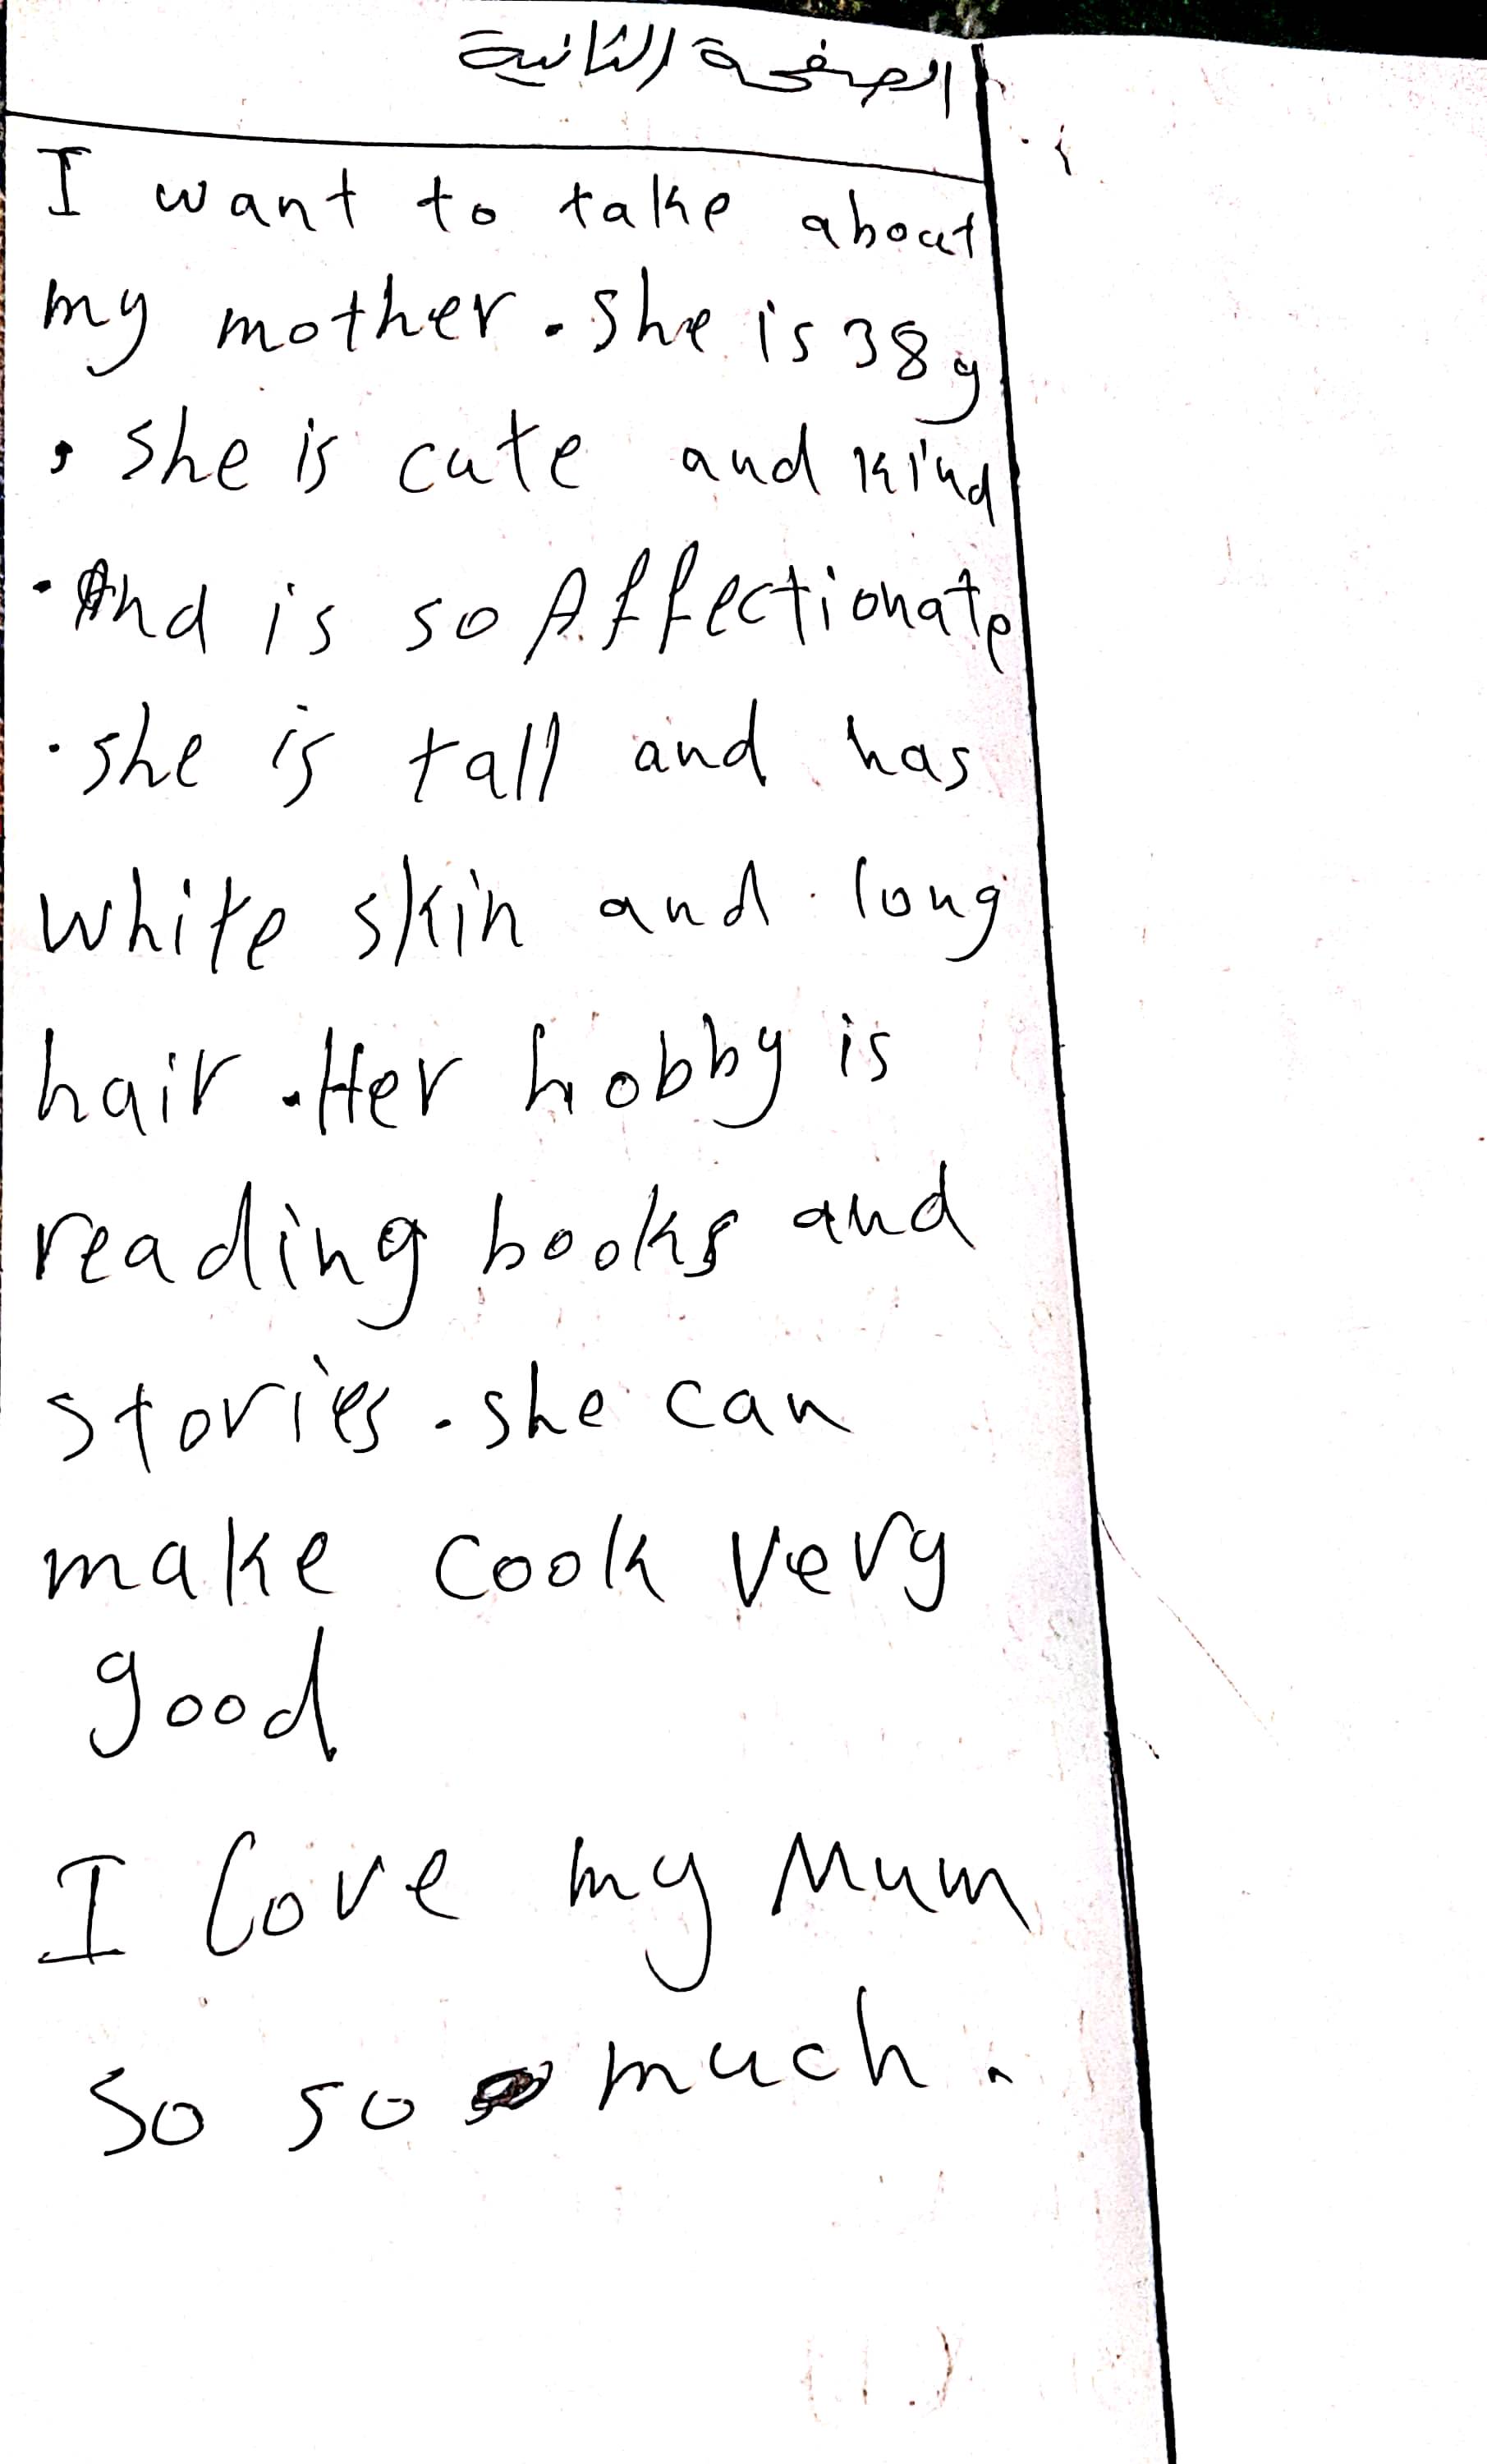 الصفحة الثانية
I want to take about
my mother. she is 38 y
. she is cute and kind
. And is so Affectionate
. she is tall and has
white skin and long
hair. Her hobby is
reading books and
stories. she can
make cook very
good
I love my Mum
so so much.